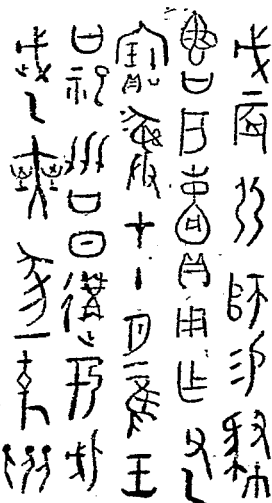 戊辰弜師易
貝用乍父乙
寶彝十月一隹王
廿祀劦日遘于匕戊
武乙奭豕一旅